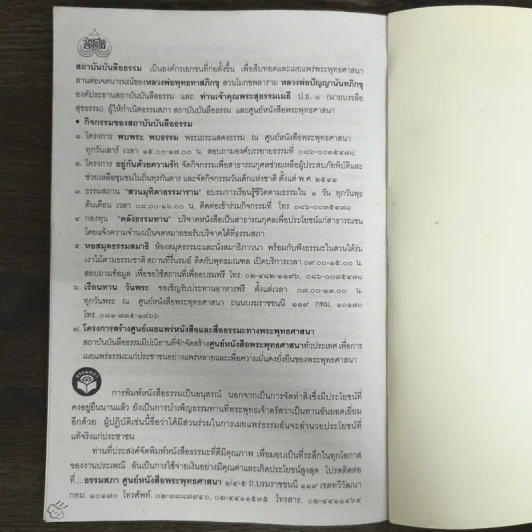 สถาบันบันลือธรรม เป็นองค์กรเอกชนที่ก่อตั้งขึ้น เพื่อสืบทอดและเผยแพร่พระพุทธศาสนา
สานต่อเจตนารมณ์ของหลวงพ่อพุทธทาสภิกขุ สวนโมกขพลาราม หลวงพ่อปัญญานันทภิกขุ
องค์ประธานสถาบันบันลือธรรม และ ท่านเจ้าคุณพระสุธรรมเมธี ป.ธ. ๘ (นายบรรลือ
สุธรรม) ผู้ให้กำเนิดธรรมสภา สถาบันบันลือธรรม และศูนย์หนังสือพระพุทธศาสนา
• กิจกรรมของสถาบันบันลือธรรม
๑. โครงการ พบพระ พบธรรม พระเถระแสดงธรรม ณ ศูนย์หนังสือพระพุทธศาสนา
ทุกวันเสาร์ เวลา ๑๕.๐๐-๑๗.๐๐ น. สอบถามองค์บรรยายธรรมที่ ๐๘๖-๐๐๓๕๔๗๘
๒. โครงการ อยู่กันด้วยความรัก จัดกิจกรรมเพื่อสาธารณกุศลช่วยเหลือผู้ประสบภัยพิบัติและ
ช่วยเหลือชุมชนในถิ่นทุรกันดาร และจัดกิจกรรมวันเด็กแห่งชาติ ตั้งแต่ พ.ศ. ๒๕๔๑
๓. ธรรมสถาน "สวนมุทิตาธรรมาราม" อบรมการเรียนรู้ชีวิตตามธรรมใน ๑ วัน ทุกวันพุธ
ต้นเดือน เวลา ๐๘.๐๐-๑๖.๐๐ น. ติดต่อเข้าร่วมกิจกรรมที่ โทร. ๐๘๖-๐๐๓๕๔๗๘
๔. กองทุน "คลังธรรมทาน" บริจาคหนังสือเป็นสาธารณกุศลเพื่อประโยชน์แก่สาธารณชน
โดยแจ้งความจำนงเป็นจดหมายขอรับบริจาคได้ที่ธรรมสภา
๕. หอสมุดธรรมสมาธิ ห้องสมุดธรรมะและนั่งสมาธิภาวนา พร้อมกับฟังธรรมะในสวนใต้ร่ม
เงาไม้ตามธรรมชาติ สถานที่รื่นรมย์ ติดกับพุทธมณฑล เปิดบริการเวลา ๐๙.๐๐-๑๕.๐๐ น.
สอบถามข้อมูล เพื่อขอใช้สถานที่เพื่ออบรมฟรี โทร. ๐๒-๔๘๒-๑๑๙๖, ๐๘๖-๐๐๓๕๔๗๘
๖. เรือนทาน วันพระ ขอเชิญรับประทานอาหารฟรี ตั้งแต่เวลา ๐๗.๐๐-๑๓.๐๐ น.
ทุกวันพระ ณ ศูนย์หนังสือพระพุทธศาสนา ถนนบรมราชชนนี ๑๑๙ กทม. ๑๐๑๗๐
โทร. ๐๘๑-๗๓๕-๑๖๖๖
๗. โครงการสร้างศูนย์เผยแพร่หนังสือและสื่อธรรมะทางพระพุทธศาสนา
สถาบันบันลือธรรมมีปณิธานที่จักจัดสร้างศูนย์หนังสือพระพุทธศาสนาทั่วประเทศ เพื่อการ
เผยแผ่พระธรรมะแก่ประชาชนอย่างแพร่หลายและเพื่อความมั่นคงยั่งยืนของพระพุทธศาสนา
การพิมพ์หนังสือธรรมเป็นอนุสรณ์ นอกจากเป็นการจัดทำสิ่งซึ่งมีประโยชน์ที่
คงอยู่ยืนนานแล้ว ยังเป็นการบำเพ็ญธรรมทานที่พระพุทธเจ้าตรัสว่าเป็นทานอันยอดเยี่ยม
อีกด้วย ผู้ปฏิบัติเช่นนี้ชื่อว่าได้มีส่วนร่วมในการเผยแผ่ธรรมอันจะอำนวยประโยชน์ที่
แท้จริงแก่ประชาชน
ท่านที่ประสงค์จัดพิมพ์หนังสือธรรมะที่ดีมีคุณภาพ เพื่อมอบเป็นที่ระลึกในทุกโอกาส
ของงานประเพณี อันเป็นการใช้จ่ายเงินอย่างมีคุณค่าและเกิดประโยชน์สูงสุด โปรดติดต่อ
ที่... ธรรมสภา ศูนย์หนังสือพระพุทธศาสนา ๑/๔-๕ ถ.บรมราชชนนี ๑๑๙ เขตทวีวัฒนา
กทม. ๑๐๑๗๐ โทรศัพท์. ๐๒-๘๘๘๗๙๔๐, ๐๒-๔๔๑๑๕๓๕ โทรสาร. ๐๒-๔๔๑๑๔๖๔